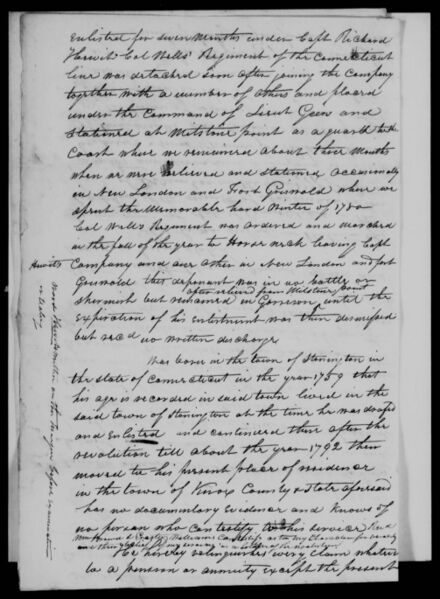 enlisted for seven Months under Capt Richard
Hewit Col Wells Regiment of the Connecticut
line was detached soon after joining the Company
together with a number of others and placed
under the command of Lieut Geer and
stationed at Milstone point as a guard to the
Coast where we remained about three Months
when we were relieved and stationed occasionally
in New London and Fort Griswold where we
spent the Memorable hard Winter of 1780
Col Wells Regiment was ordered and marched
in the fall of the year to Horse neck leaving Capt
Hewits Company and one other in New London and fort
Griswold this deponant was in no battle or
after relieved from Milstone point
skirmish but remained in Garrison until the
expiration of his enlistment was then dismissed
but recd no written discharge
Was born in the town of Stonington in
the state of Connecticut in the year 1759 that
his age is recorded in said town lived in the
said town of Stonington at the time he was drafted
and Enlisted and continued there after the
revolution till about the year 1792 then
moved to his present place of residence
in the town of Knox County & State aforesaid
has no documentary evidence and knows of
no person who can testify to his service
can testify as to my Character for veracity
and their belief of my services as a soldier of the revolution
He hereby relinquishes every claim whatever
to a pension or annuity except the present
Words Hewits written on the margin before execution